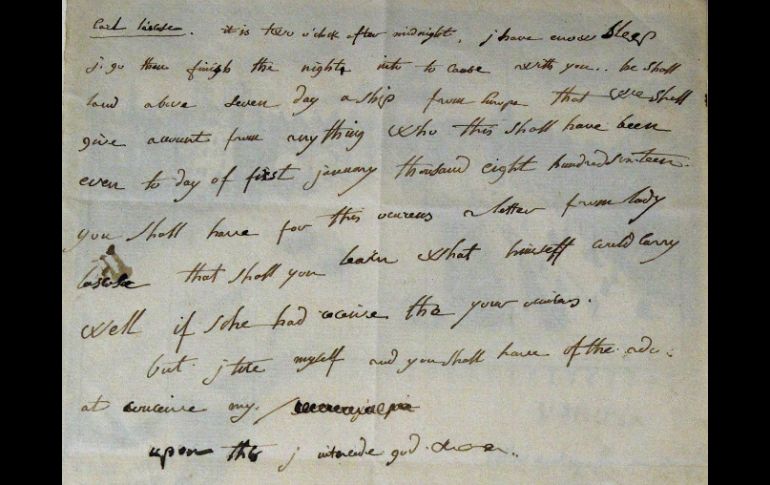 Earl lascase. it is two o'clock after midnight, j have enow sleep
j go then finish the night into to cause with you.. he shall
land above seven day a ship from Europe that we shall
give account from anything who this shall have been
even to day of first january thousand eight hundred sixteen.
you shall have for this ocurens a letter from lady
lascase that shall you learn what himself could carry
well if sche had occurens the your ocurens.
but j tire myself and you shall have of the ado:
at conceive my
upon this j intercede god.